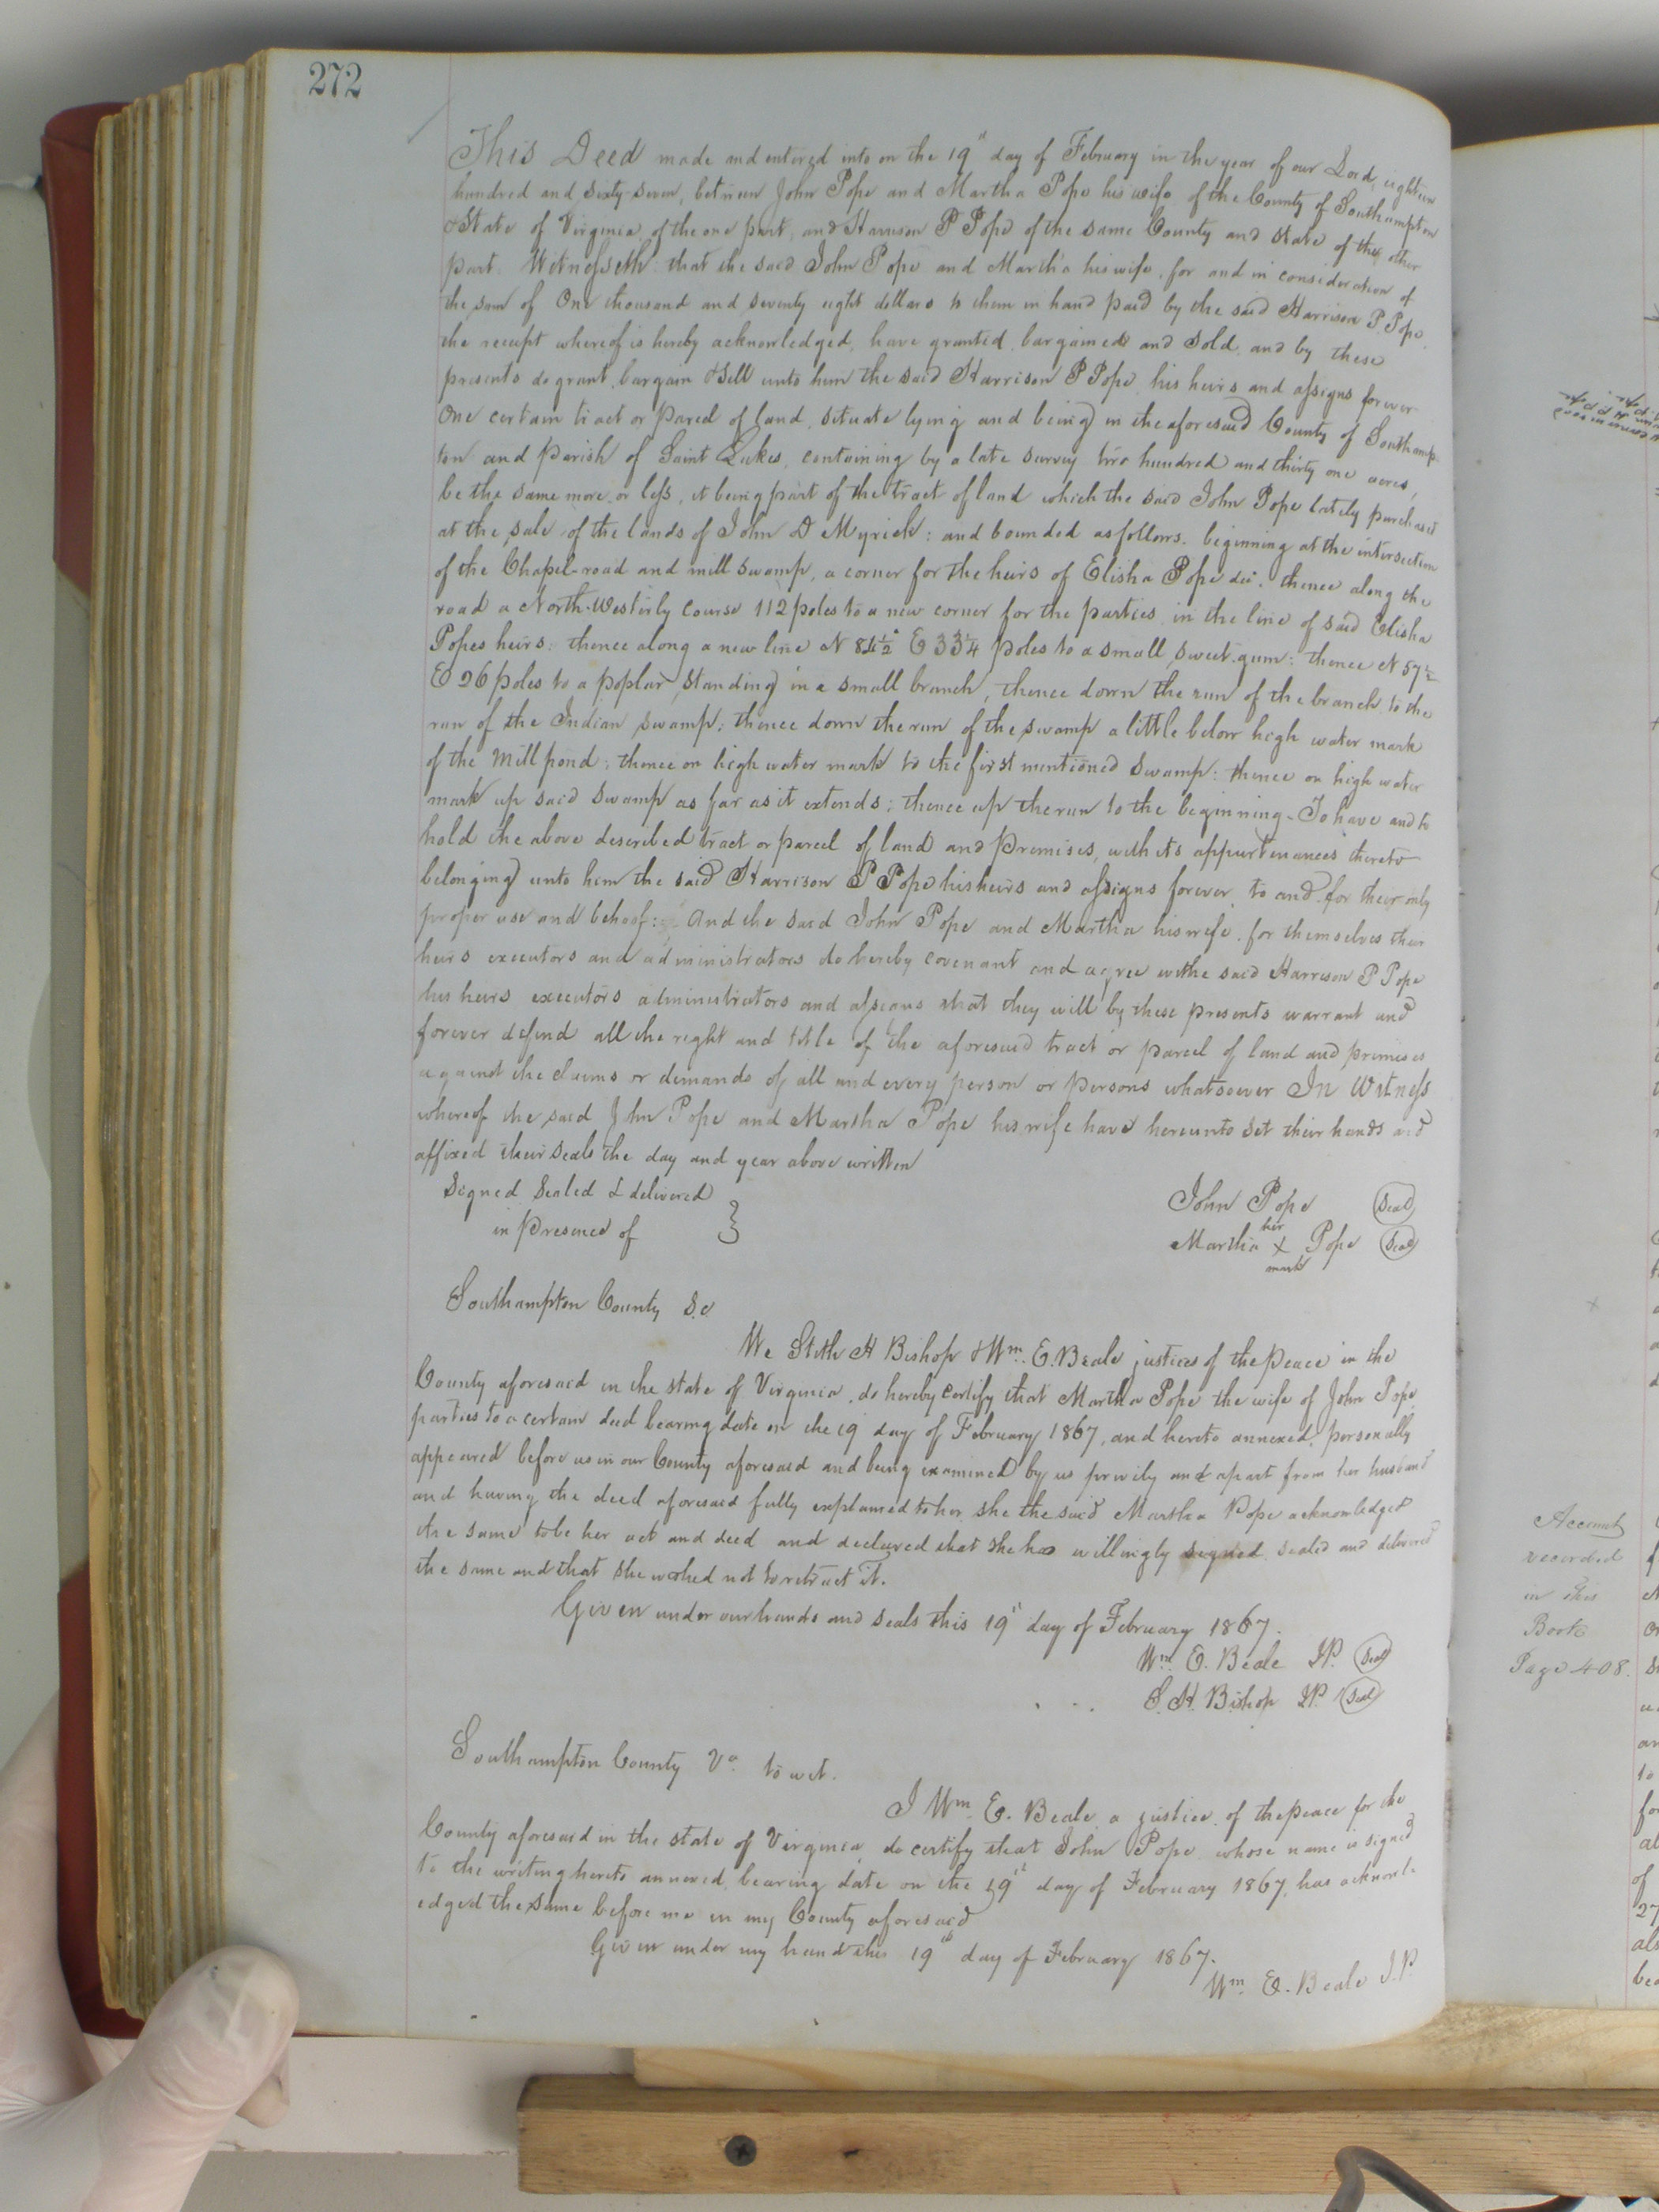 272
This Deed made and entered into on the 19" day of February in the year of our Lord, eighteen
hundred and sixty-seven, between John Pope and Martha Pope his wife of the County of Southampton
& State of Virginia, of the one part, and Harrison P Pope of the same County and State of the other
part. Witnesseth that the said John Pope and Martha his wife, for and in consideration of
the sum of One thousand and seventy eight dollars to them in hand paid by the said Harrison P. Pope,
the receipt whereof is hereby acknowledged, have granted bargained and sold, and by these
presents do grant, bargain & sell unto him the said Harrison P Pope, his heirs and assigns forever
One certain tract or parcel of land, situate lying and being in the aforesaid County of Southamp-
ton and parish of Saint Lukes, containing by a late survey two hundred and thirty one acres,
be the same more or less, it being part of the tract of land which the said John Pope lately purchased
at the sale of the lands of John D Myrick: and bounded as follows. beginning at the intersection
of the Chapel-road and mill swamp, a corner for the heirs of Elisha Pope dec: thence along the
road a North-Westerly course 112 poles to a new corner for the parties, in the line of said Elisha
Popes heirs: thence along a new line N E 33 1/4 poles to a small sweet gum: thence N 57 1/2
E 26 poles to a poplar, standing in a small branch, thence down the run of the branch to the
run of the Indian swamp; thence down the run of the swamp a little below high water mark
of the mill pond; thence on high water mark to the first mentioned swamp: thence on high water
mark up said swamp as far as it extends; thence up the run to the beginning - To have and to
hold the above described tract or parcel of land and premises, with its appurtenances thereto
belonging unto him the said Harrison P Pope his heirs and assigns forever, to and for their only
proper use and behoof: And the said John Pope and Martha his wife, for themselves their
heirs executors and administrators do hereby covenant and agree withe said Harrison P Pope
his heirs executors administrators and assigns that they will by these presents warrant and
forever defend all the right and title of the aforesaid tract or parcel of land and premises
against the claims or demands of all and every person or persons whatsoever In Witness
whereof the said John Pope and Martha Pope his wife have hereunto set their hands and
affixed their seals the day and year above written
Signed Sealed & delivered
in presence of
John Pope Seal
her
Martha X Pope Seal
mark
Southampton County Sc
We Stith H Bishop & Wm. E. Beale justices of the peace in the
County aforesaid in the state of Virginia, do hereby certify that Martha Pope the wife of John Pope
parties to a certain deed bearing date on the 19 day of February 1867, and hereto annexed, personally
appeared before us in our County aforesaid and being examined by us privily and apart from her husband
and having the deed aforesaid fully explained to her she the said Martha Pope acknowledged
the same to be her act and deed and declared that she had willingly signed, sealed and delivered
the same and that she wished not to retract it.
Given under our hands and seals this 19" day of February 1867.
Wm. E. Beale J.P. Seal
S. H. Bishop J.P. Seal
Southampton County Va. to wit.
I Wm. E. Beale, a justice of the peace for the
County aforesaid in the state of Virginia, do certify that John Pope whose name is signed
to the writing hereto annexed, bearing date on the 19th day of February 1867, has acknowl-
edged the same before me in my County aforesaid
Given under my hand this 19th day of February 1867.
Wm. E. Beale J.P.
Account
recorded
in this
Book
Page 408.